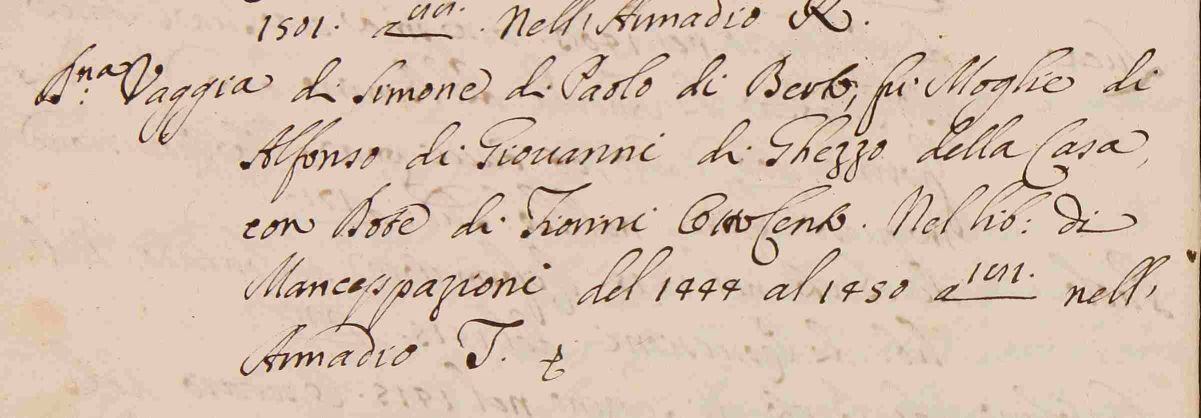 1501. a 101. Nell'Armadio R.
D.na Vaggia di Simone di Paolo di Berto, fu Moglie di
Alfonso di Giovanni di Ghezzo della Casa,
con Dote di Fiorini Ottocento. Nel lib: di
Manceppazioni del 1444 al 1450 a nell'
Armadio T.